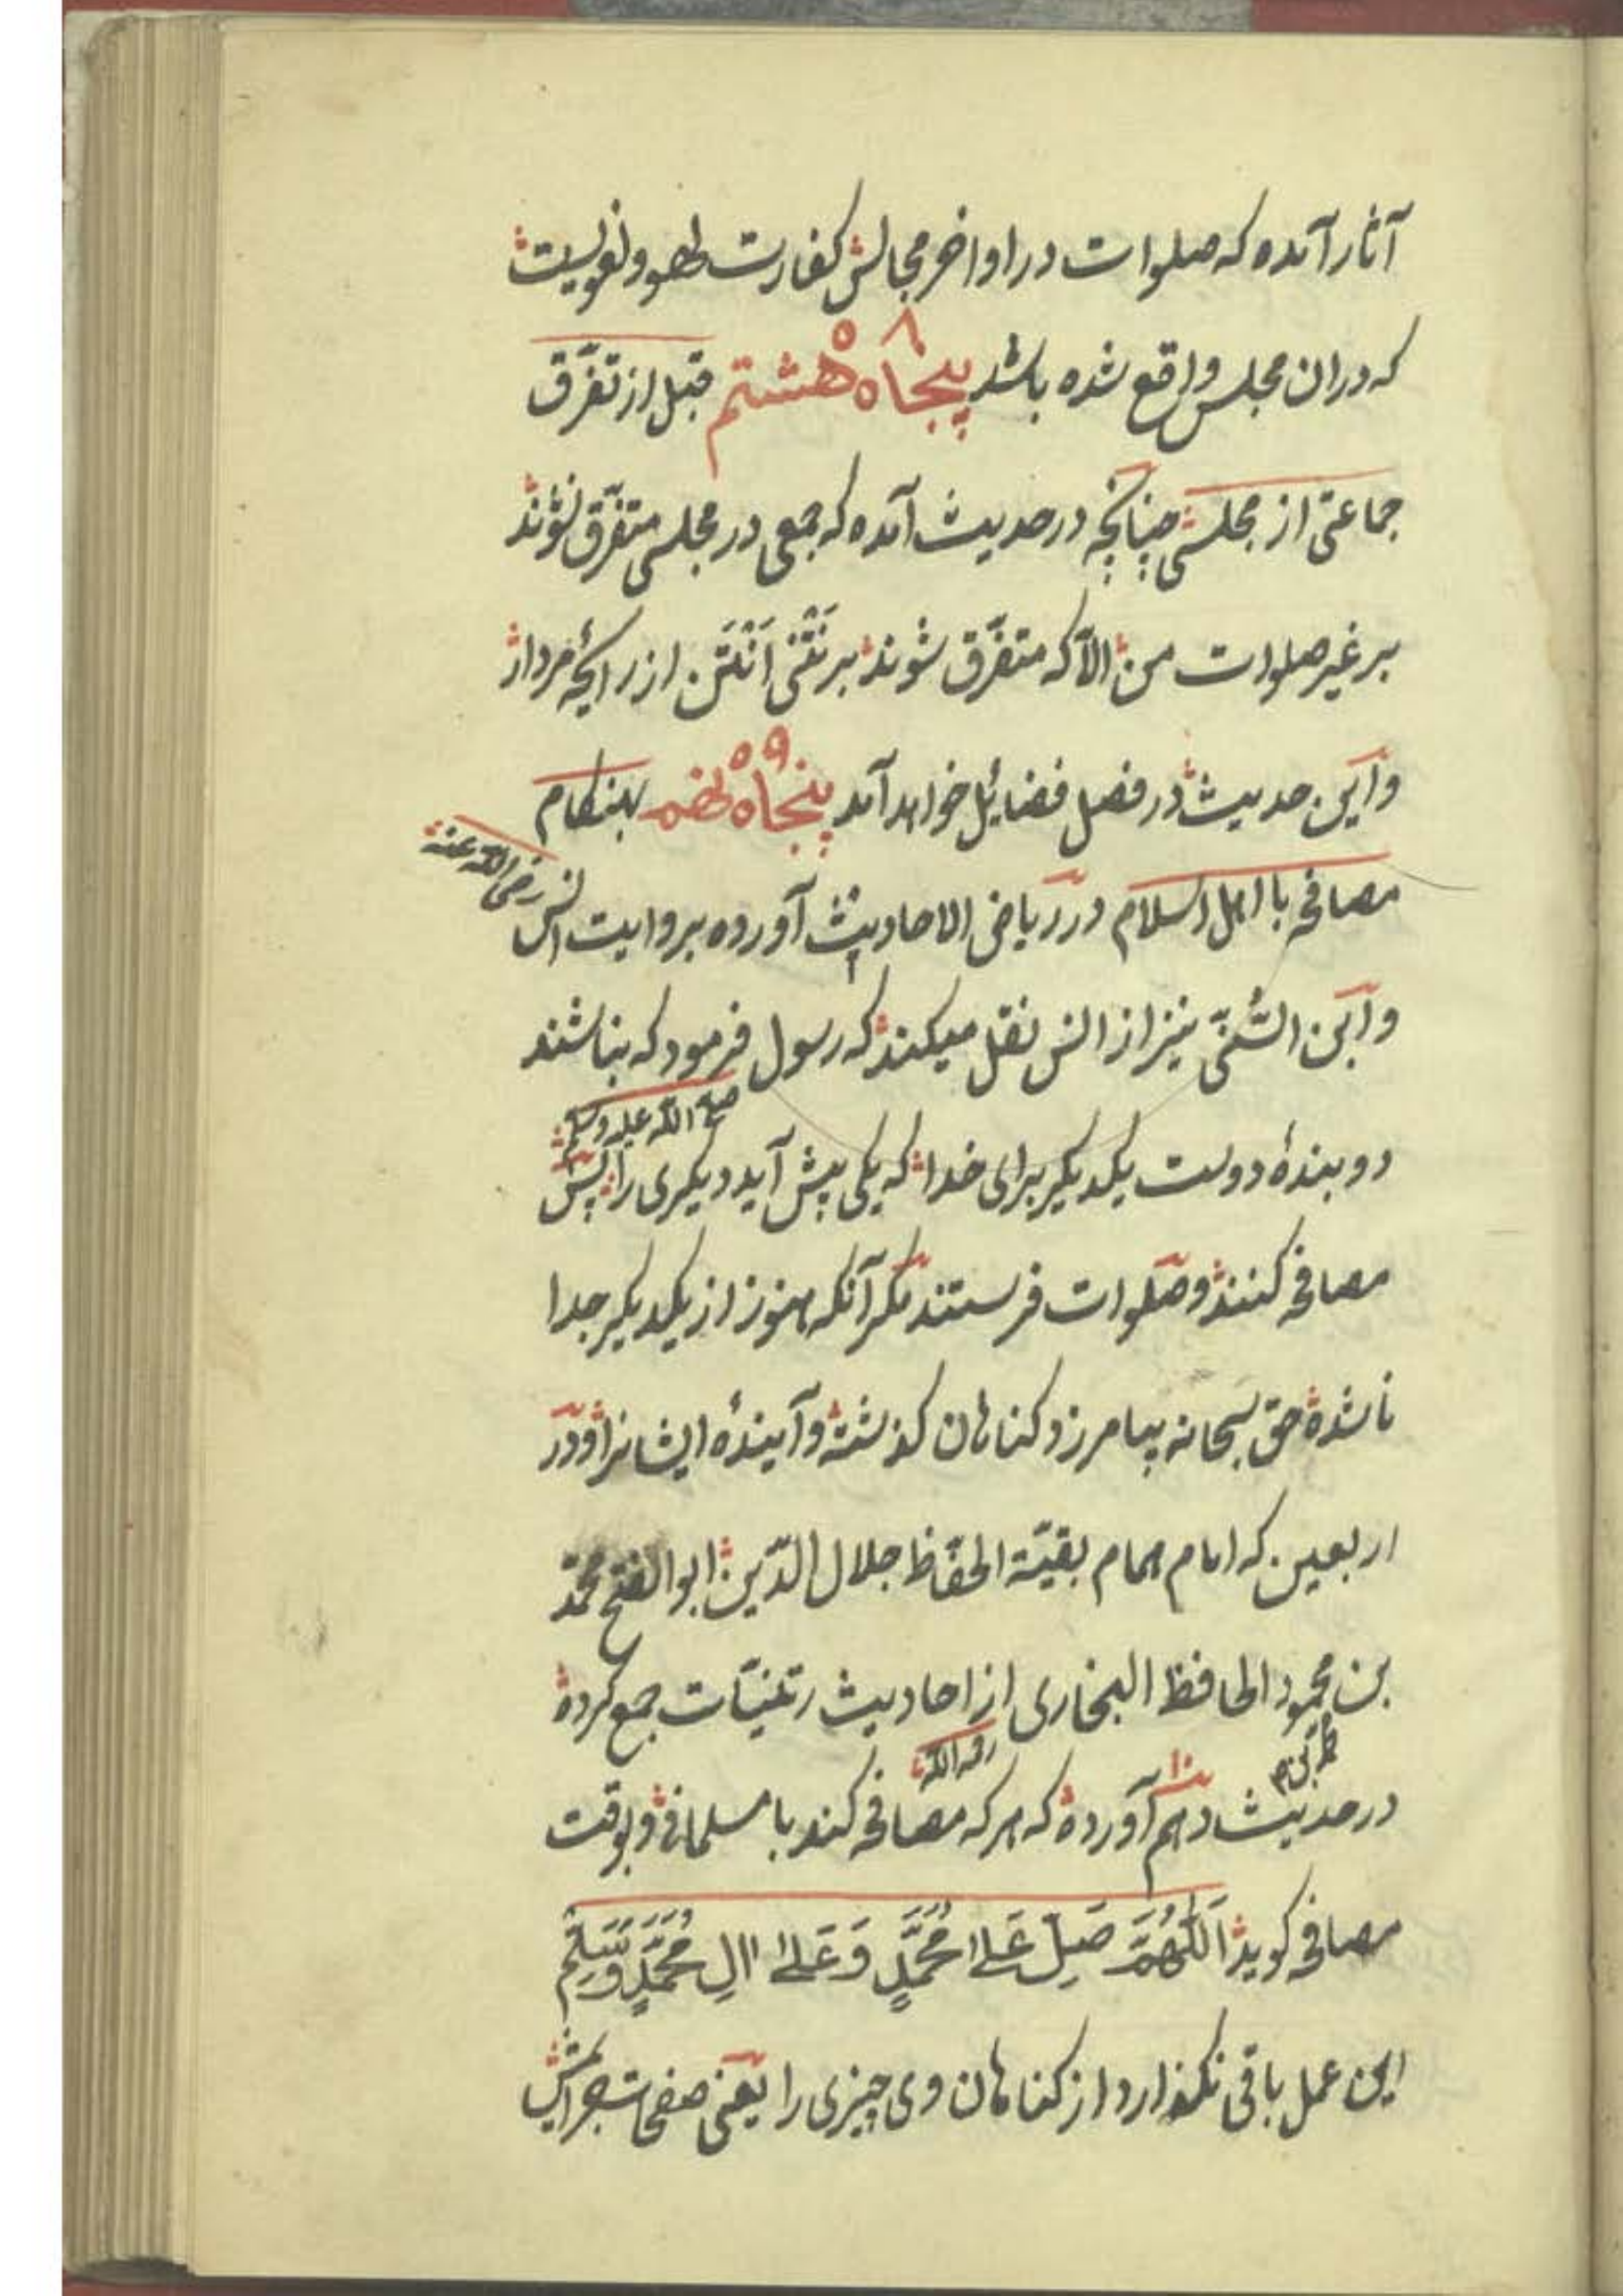 آثار آمده که صلوات در اواخر مجالس کفارت لهو و لغویست
که دران مجلس واقع شده باشد پنجاه هشتم ۵۸ قبل از تفرّق
جماعتی از مجلسی چنانچه در حدیث آمده که جمعی در مجلسی متفرّق نشوند
بر غیر صلوات من الّا که متفرّق شوند بر نَتْنی اَنْتَن از رائحۀ مردار
و این حدیث در فصل فضائل خواهد آمد پنجاه نهم ۵۹ بهنکام
مصافحه با اهل اسلام در ریاض الاحادیث آورده بروایت انس رضی الله عنه
و ابن السُّنّی نیز از انس نقل میکند که رسول صلی الله علیه وسلم فرمود که نباشند
دو بندۀ دوست یکدیکر برای خدا که یکی پیش آید دیکری را پس
مصافحه کنند و صلوات فرستند مکر آنکه هنوز از یکدیکر جدا
ناشده حق سبحانه بیامرزد کناهان کذشته و آیندۀ ایشانرا و در
اربعین که امام همام بقیّة الحفّاظ جلال الدّین ابو الفتح محمّد
بن محمود الحافظ البخاری رحمه الله از احادیث رتنیّات جمع کرده
در حدیث دهم ۱۰ آورده که هر که مصافحه کند با مسلمانی و بوقت
مصافحه کوید اَللّٰهُمَّ صَلِّ عَلٰی مُحَمَّدٍ وَعَلٰی اٰلِ مُحَمَّدٍ وَسَلِّم
این عمل باقی نکذارد از کناهان وی چیزی را یعنی صفحات جرائمش